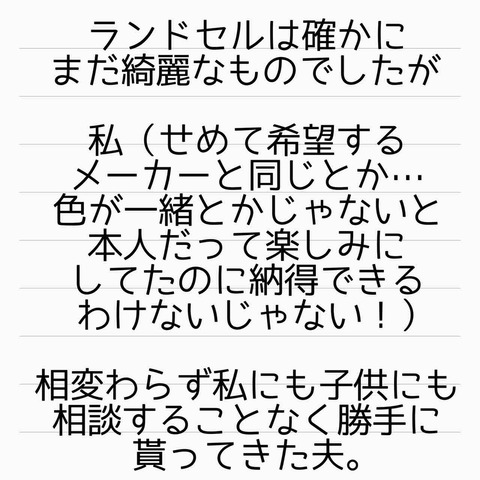 ランドセルは確かに
まだ綺麗なものでしたが
私（せめて希望する
メーカーと同じとか…
色が一緒とかじゃないと
本人だって楽しみに
してたのに納得できる
わけないじゃない！）
相変わらず私にも子供にも
相談することなく勝手に
貰ってきた夫。